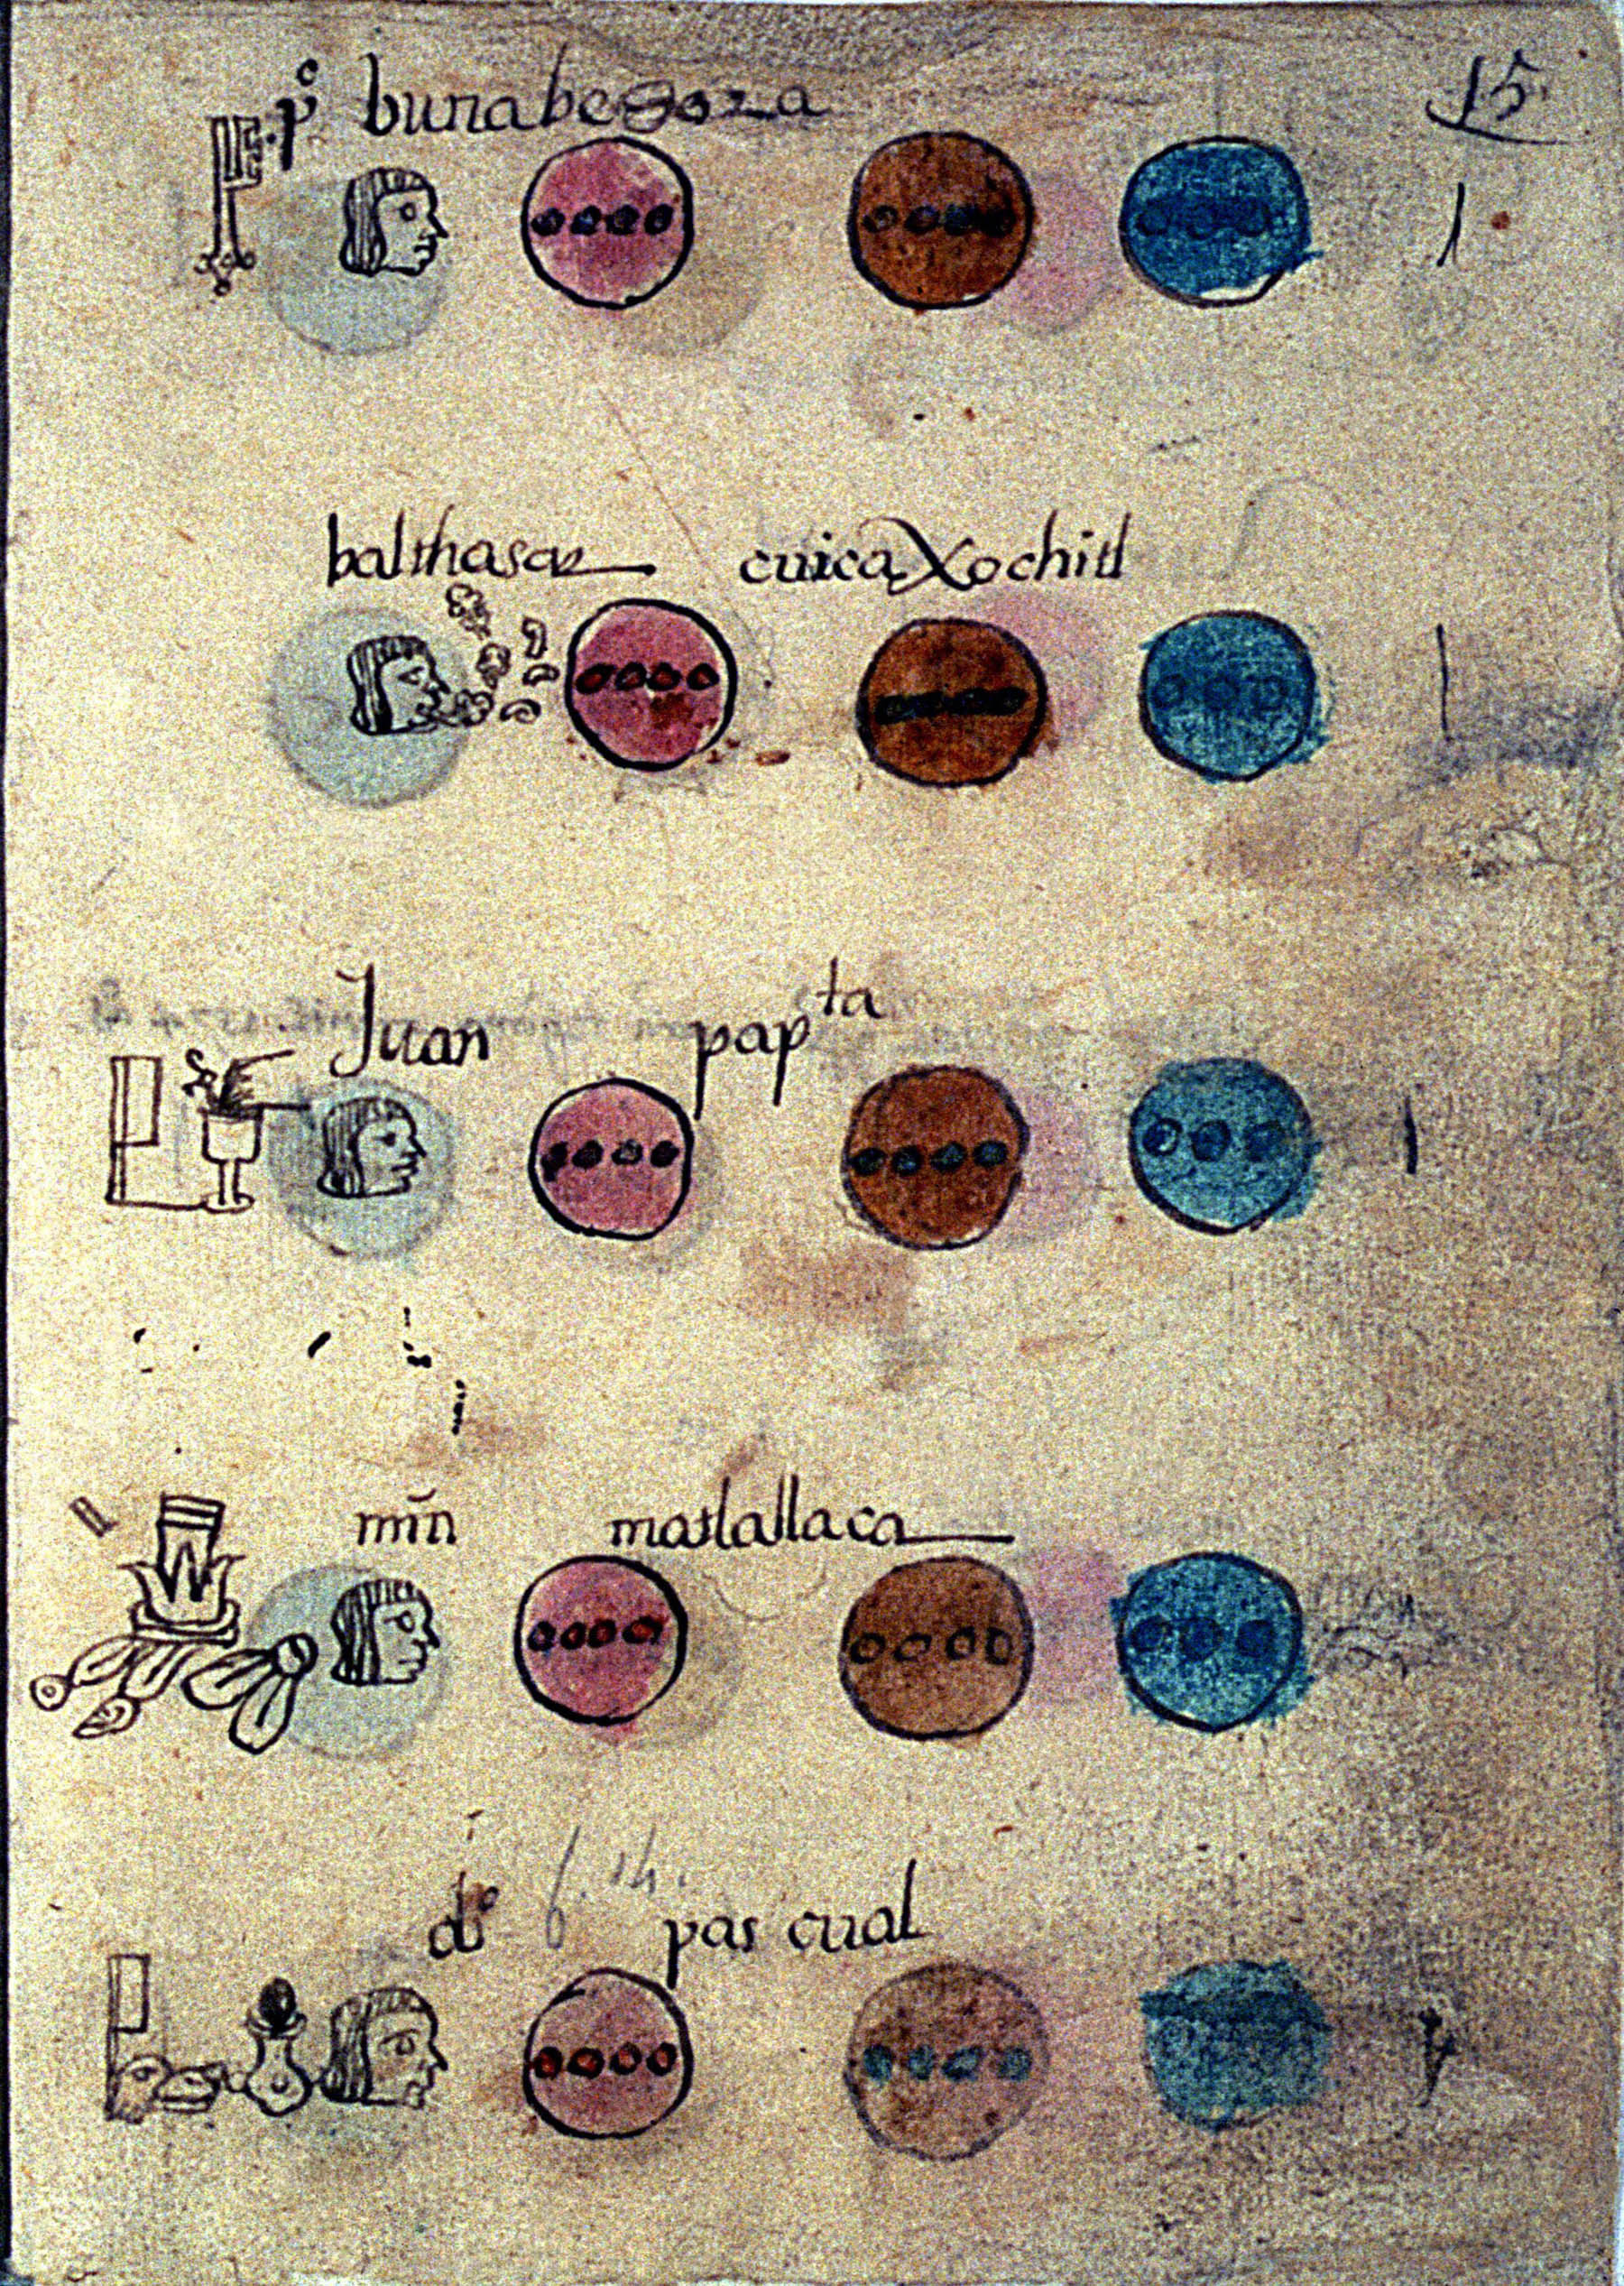 15
pº bunabegoza
balthasar cuicaxochitl
Juan pap^ta
mĩn matlallaca
dº pascual